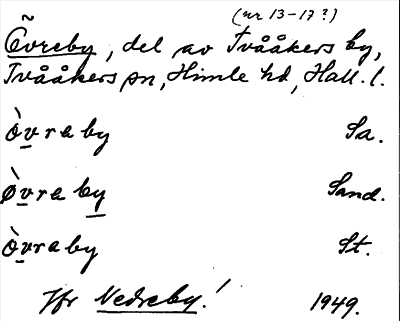 (nr 13-17?)
Övreby, del av Tvååkers by,
Tvååkers sn, Himle hd, Hall. l.
òvraby Sa.
ǿvraby Sand.
òvraby St.
Jfr Nedreby! 1949.